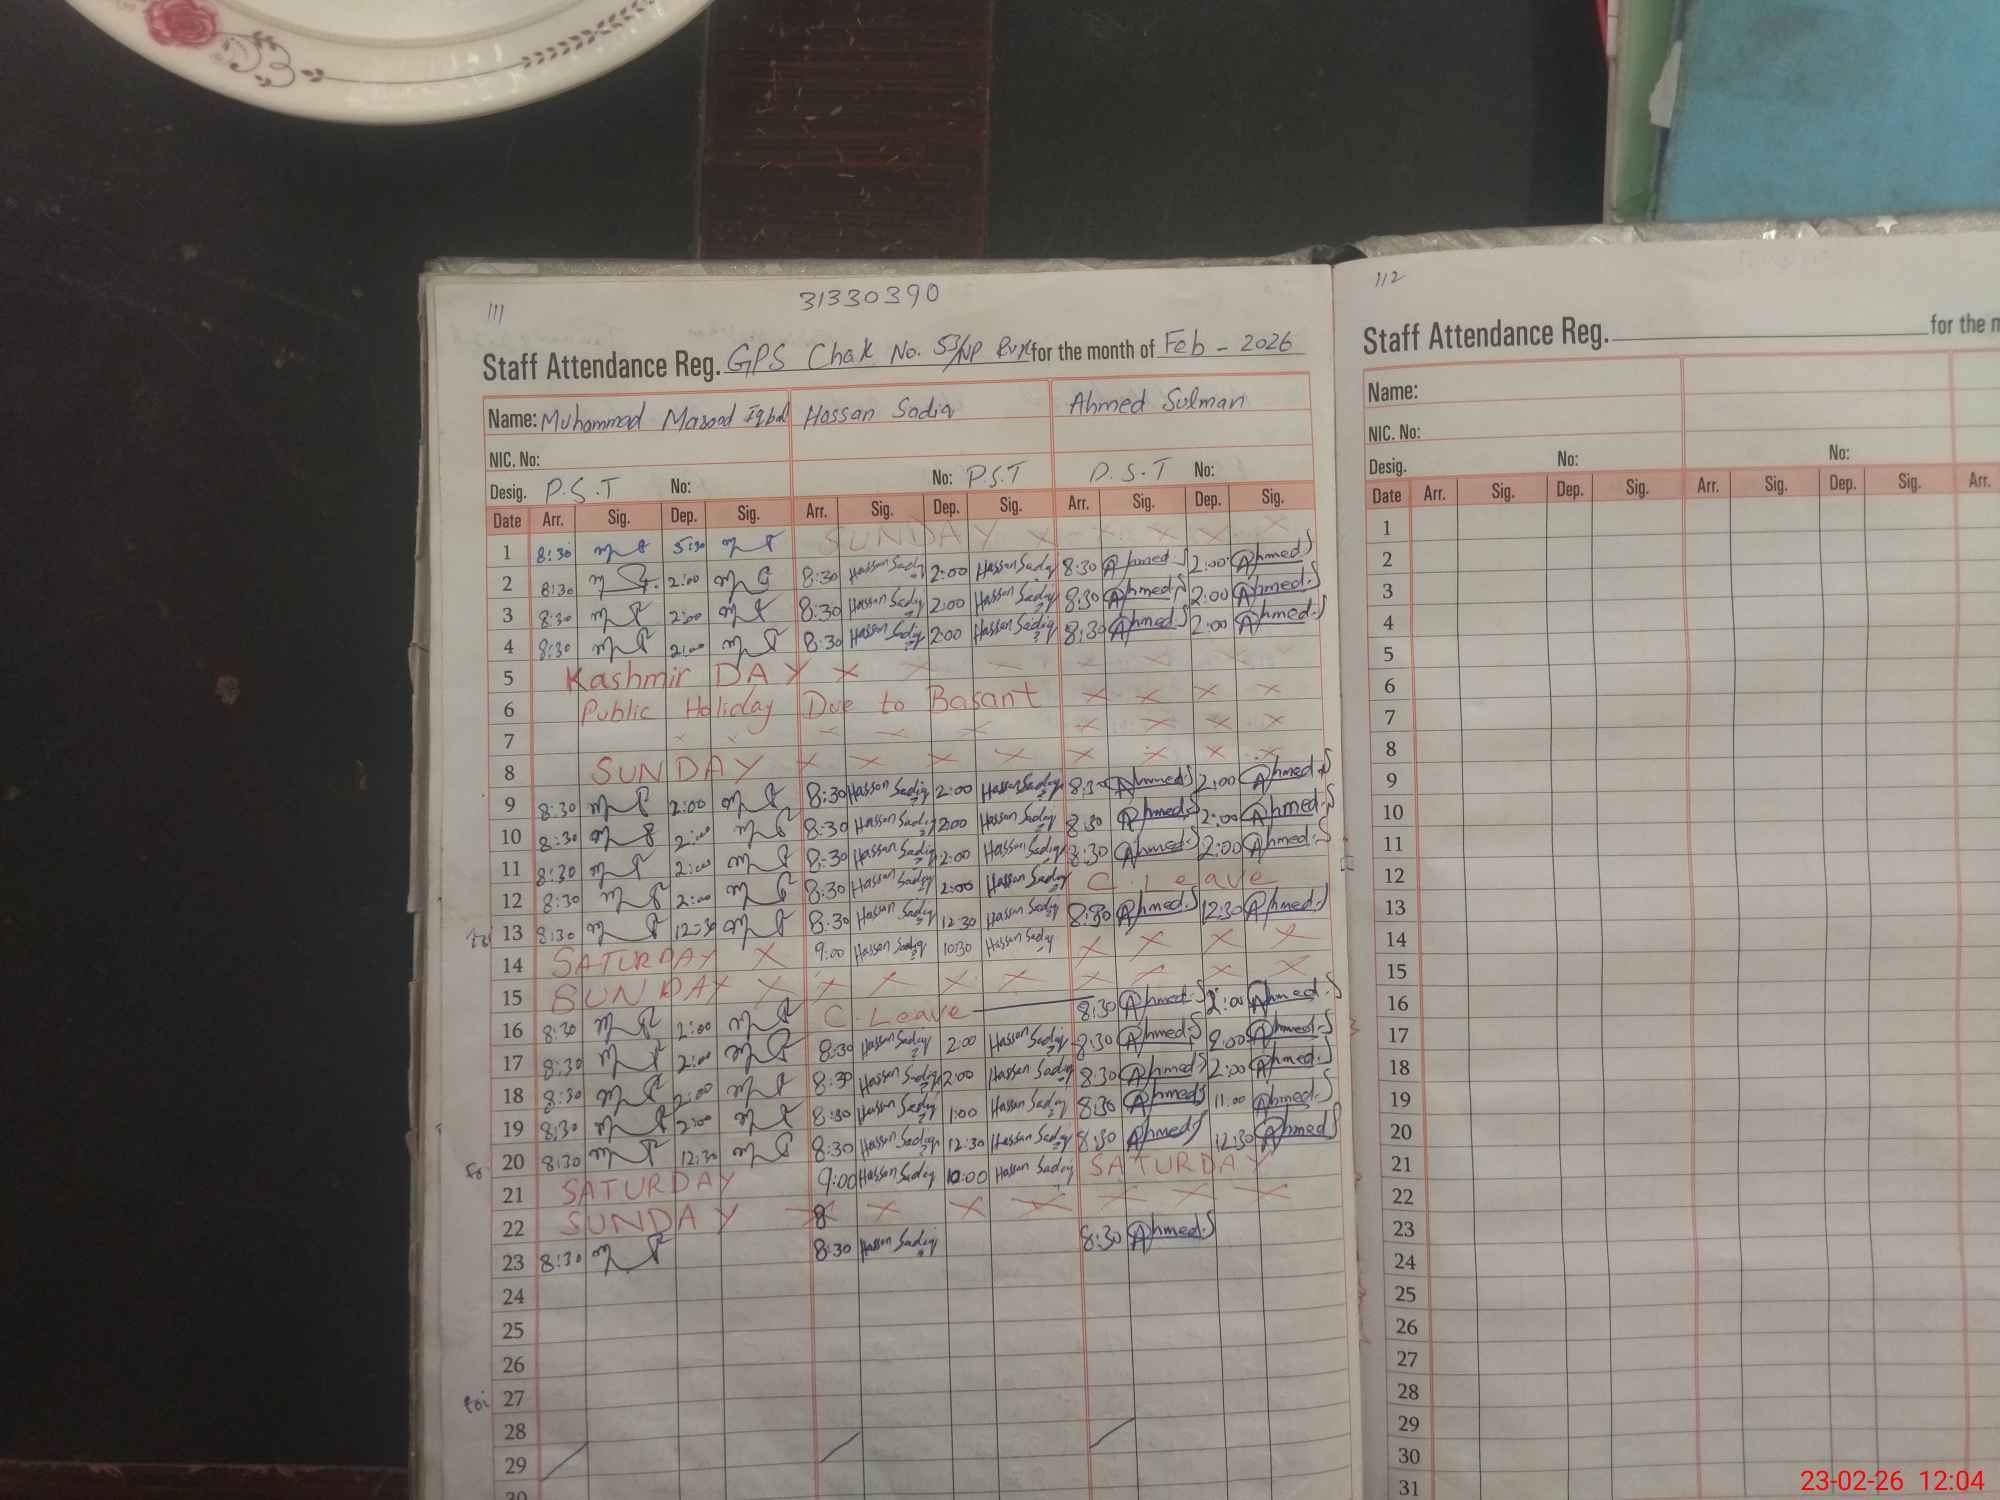 111
31330390
Staff Attendance Reg. GPS Chak No. 53/NP for the month of Feb - 2026
Name: Muhammad Masood Iqbal Hassan Sadiq Ahmed Sulman
NIC. No:
Desig. P.S.T No: No: P.S.T P.S.T No:
Date Arr. Sig. Dep. Sig. Arr. Sig. Dep. Sig. Arr. Sig. Dep. Sig.
1 8:30 5:30 SUNDAY x x x x x
2 8:30 2:00 8:30 Hassan Sadiq 2:00 Hassan Sadiq 8:30 Ahmed.S 2:00 Ahmed.S
3 8:30 2:00 8:30 Hassan Sadiq 2:00 Hassan Sadiq 8:30 Ahmed.S 2:00 Ahmed.S
4 8:30 2:00 8:30 Hassan Sadiq 2:00 Hassan Sadiq 8:30 Ahmed.S 2:00 Ahmed.S
5 Kashmir DAY x x x x x x x
6 Public Holiday Due to Basant x x x x
7 x x x x x x x x x
8 SUNDAY x x x x x x x x
9 8:30 2:00 8:30 Hassan Sadiq 2:00 Hassan Sadiq 8:30 Ahmed.S 2:00 Ahmed.S
10 8:30 2:00 8:30 Hassan Sadiq 2:00 Hassan Sadiq 8:30 Ahmed.S 2:00 Ahmed.S
11 8:30 2:00 8:30 Hassan Sadiq 2:00 Hassan Sadiq 8:30 Ahmed.S 2:00 Ahmed.S
12 8:30 2:00 8:30 Hassan Sadiq 2:00 Hassan Sadiq C. Leave
13 8:30 12:30 8:30 Hassan Sadiq 12:30 Hassan Sadiq 8:30 Ahmed.S 12:30 Ahmed.S
14 SATURDAY x 9:00 Hassan Sadiq 10:30 Hassan Sadiq x x x x
15 SUNDAY x x x x x x x x x
16 8:30 2:00 C. Leave 8:30 Ahmed.S 2:00 Ahmed.S
17 8:30 2:00 8:30 Hassan Sadiq 2:00 Hassan Sadiq 8:30 Ahmed.S 2:00 Ahmed.S
18 8:30 2:00 8:30 Hassan Sadiq 2:00 Hassan Sadiq 8:30 Ahmed.S 2:00 Ahmed.S
19 8:30 2:00 8:30 Hassan Sadiq 1:00 Hassan Sadiq 8:30 Ahmed.S 11:00 Ahmed.S
20 8:30 12:30 8:30 Hassan Sadiq 12:30 Hassan Sadiq 8:30 Ahmed.S 12:30 Ahmed.S
21 SATURDAY 9:00 Hassan Sadiq 10:00 Hassan Sadiq SATURDAY
22 SUNDAY x 8 x x x x x x
23 8:30 8:30 Hassan Sadiq 8:30 Ahmed.S
24
25
26
27
28
29
30
112
Staff Attendance Reg. for the m
Name:
NIC. No:
Desig. No: No:
Date Arr. Sig. Dep. Sig. Arr. Sig. Dep. Sig. Arr.
1
2
3
4
5
6
7
8
9
10
11
12
13
14
15
16
17
18
19
20
21
22
23
24
25
26
27
28
29
30
31
23-02-26 12:04